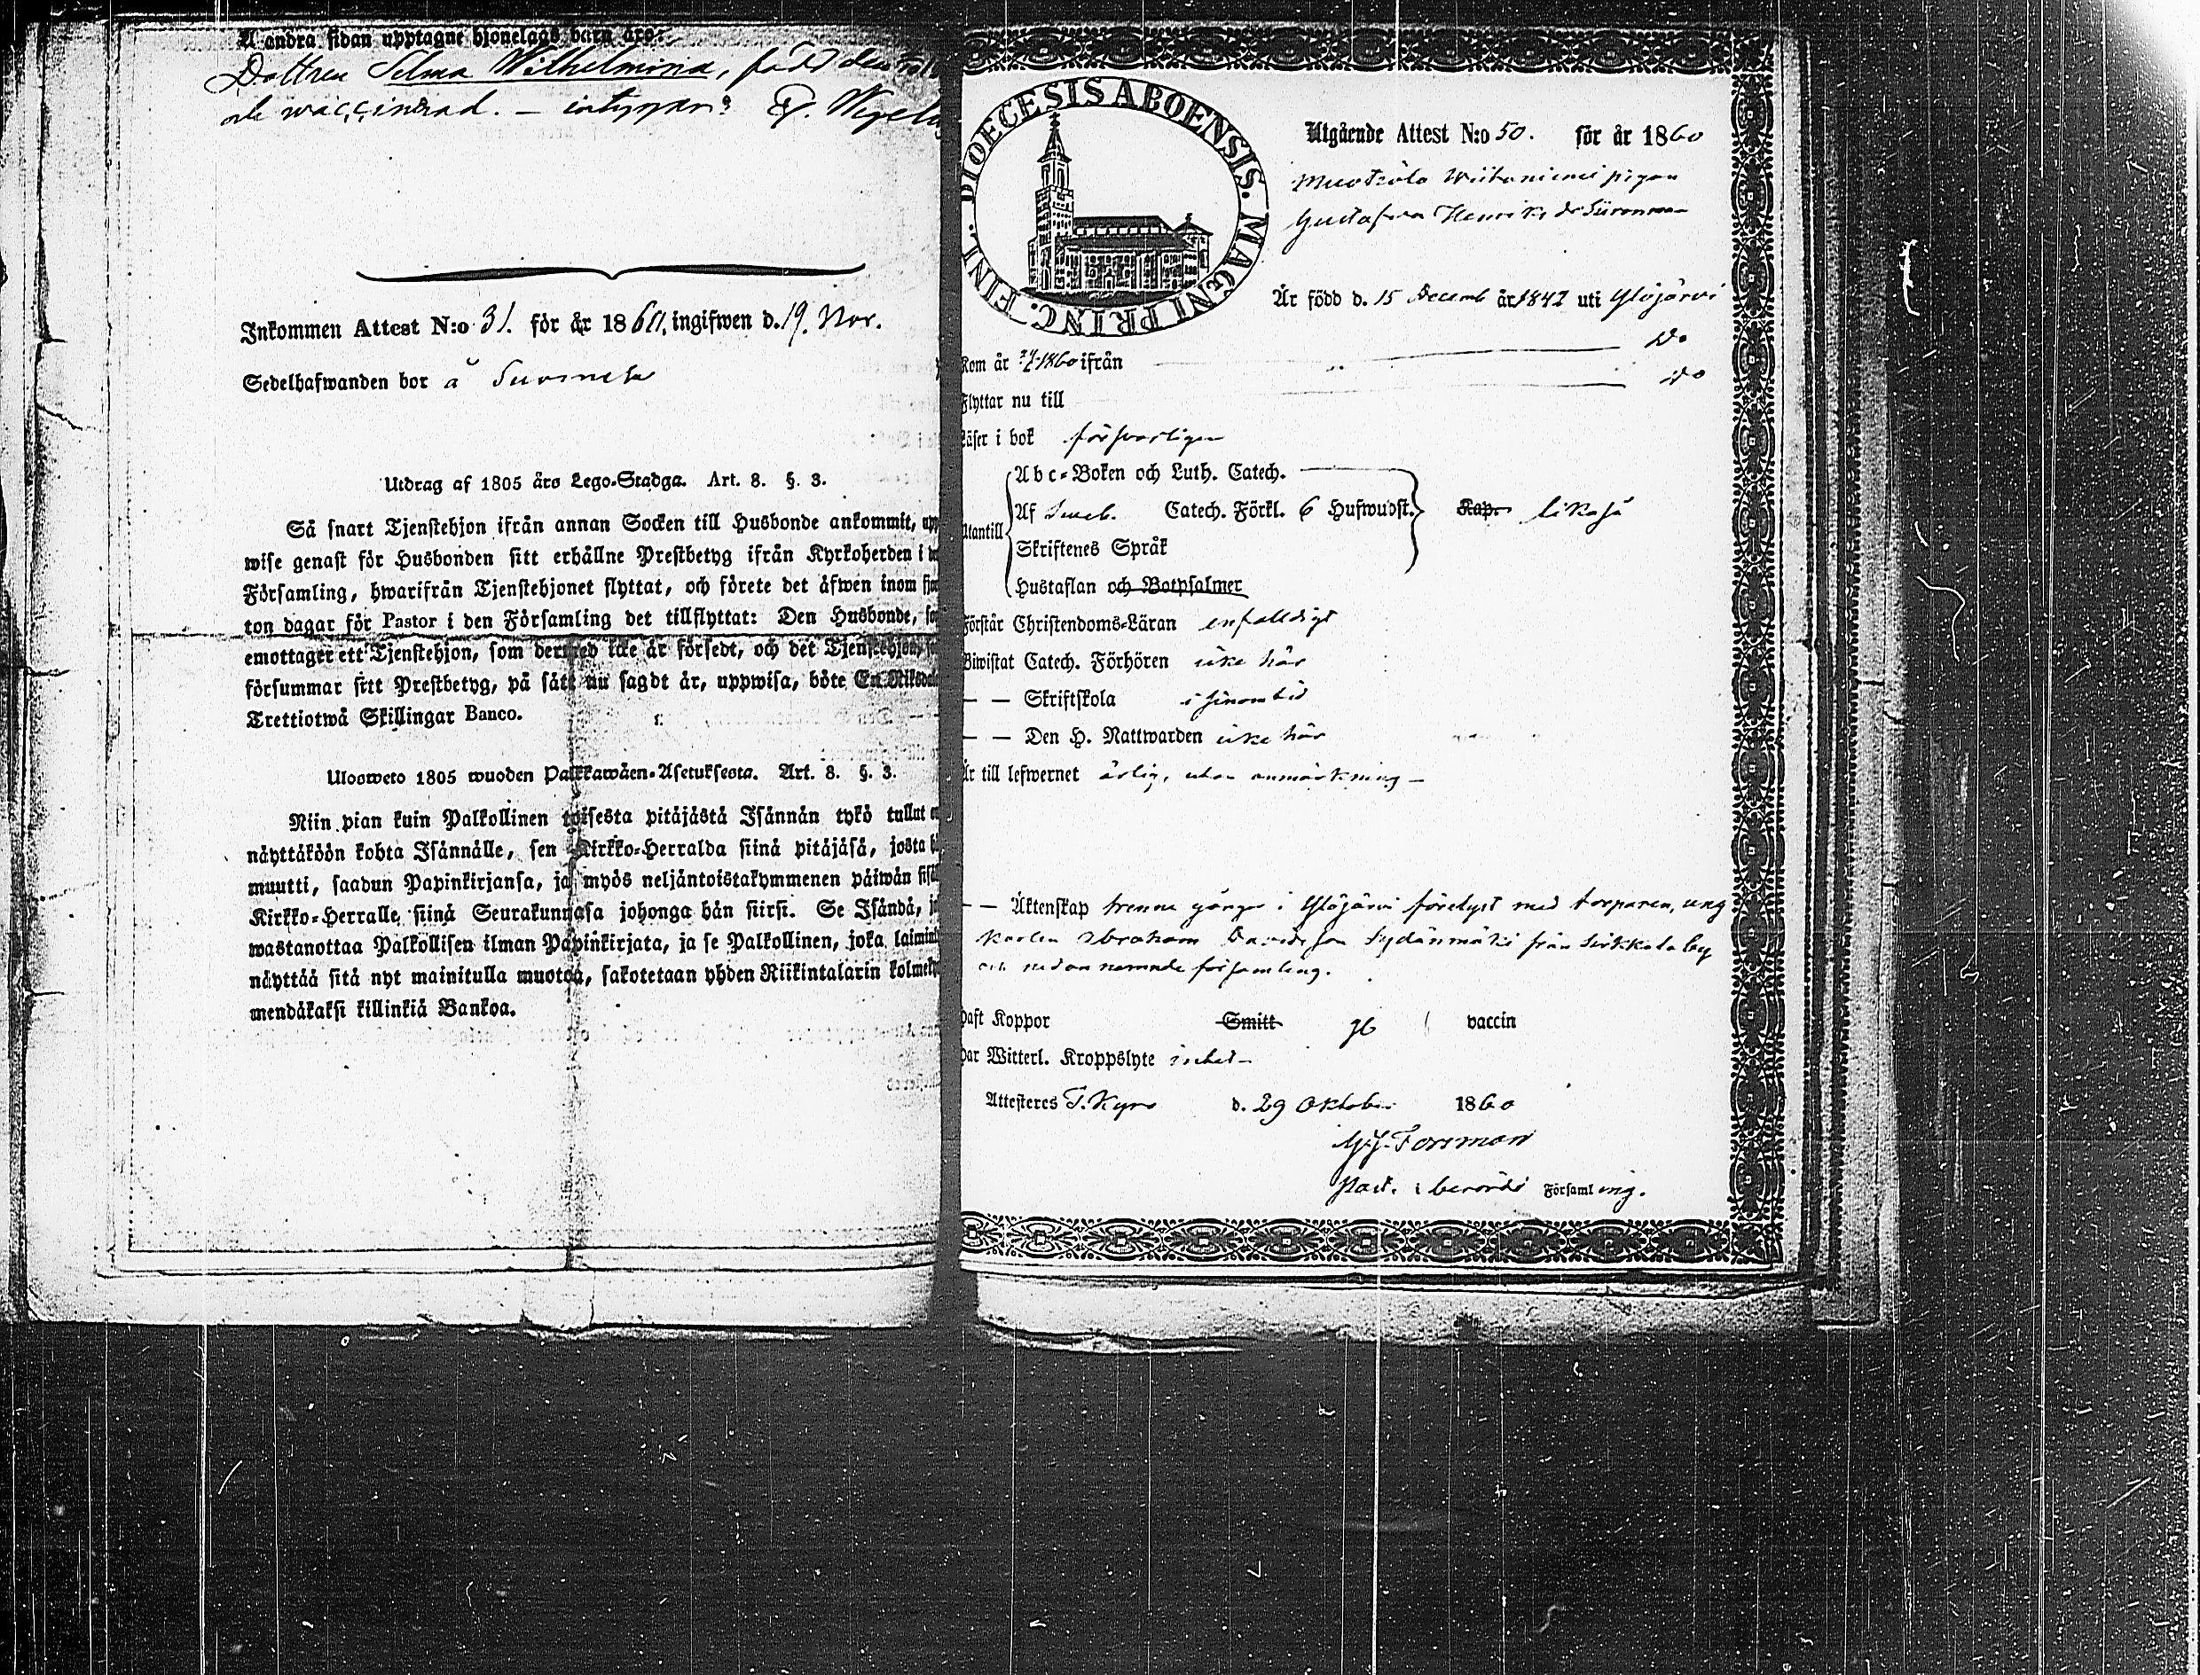 Å andra sidan upptagne hjonelags barn äro:
Dottren Selma Wilhelmina, född den
waccinerad. —
Inkommen Attest N:o 31. för år 1860, ingifwen d. 19. Nov.
Sedelhafwanden bor å
Utdrag af 1805 års Lego-Stadga. Art. 8. §. 3.
Så snart Tjenstehjon ifrån annan Socken till Husbonde ankommit, upp
wise genast för Husbonden sitt erhållne Prestbetyg ifrån Kyrkoherden i
Församling, hwarifrån Tjenstehjonet flyttat, och förete det äfwen inom fjor
ton dagar för Pastor i den Församling det tillflyttat: Den Husbonde, so
emottager ett Tjenstehjon, som dermed icke är försedt, och det Tjenstehjon, so
försummar sitt Prestbetyg, på sätt nu sagdt är, uppwisa, böte En Riksdal
Trettiotwå Skillingar Banco.
Ulosweto 1805 wuoden Palkkawäen-Asetuksesta. Art. 8. §. 3.
Niin pian kuin Palkollinen toisesta pitäjästä Isännän tykö tullut on
näyttäköön kohta Isännälle, sen Kirkko-Herralda siinä pitäjäsä, josta hän
muutti, saadun Papinkirjansa, ja myös neljäntoistakymmenen päiwän sisäl
Kirkko-Herralle siinä Seurakunnasa johonga hän siirsi. Se Isändä, jo
wastanottaa Palkollisen ilman Papinkirjata, ja se Palkollinen, joka laimin
näyttää sitä nyt mainitulla muotoa, sakotetaan yhden Riikintalarin kolmeky
mendäkaksi killinkiä Bankoa.
DIOECESIS ABOENSIS. MAGNI PRINC. FINL.
Utgående Attest N:o 50. för år 1860
pigan
Gustafva Henriks dr
Är född d. 15 Decemb år 1842 uti Ylöjärvi
Kom år 1860 ifrån Do
Flyttar nu till Do
Läser i bok försvarligen
Utantill
Abc-Boken och Luth. Catech.
Af Sweb. Catech. Förkl. 6 Hufwudst. Kap. likaså
Skriftenes Språk
Hustaflan och Botpsalmer
Förstår Christendoms-Läran enfaldigt
Biwistat Catech. Förhören icke här
— — Skriftskola i sinom tid
— — Den H. Nattwarden icke här
Är till lefwernet ärlig, utan anmärkning —
— — Äktenskap trenne gånger i Ylöjärvi förelyst med torparen, ung
karlen Abraham Davidsson Sydänmäki från Sirkkala by
och nedannemnde församling.
Haft Koppor Smitt vaccin
Har Witterl. Kroppslyte intet
Attesteres T. Kyro d. 29 Oktober 1860
G. J. Forsman
Past. i berörde Församling.